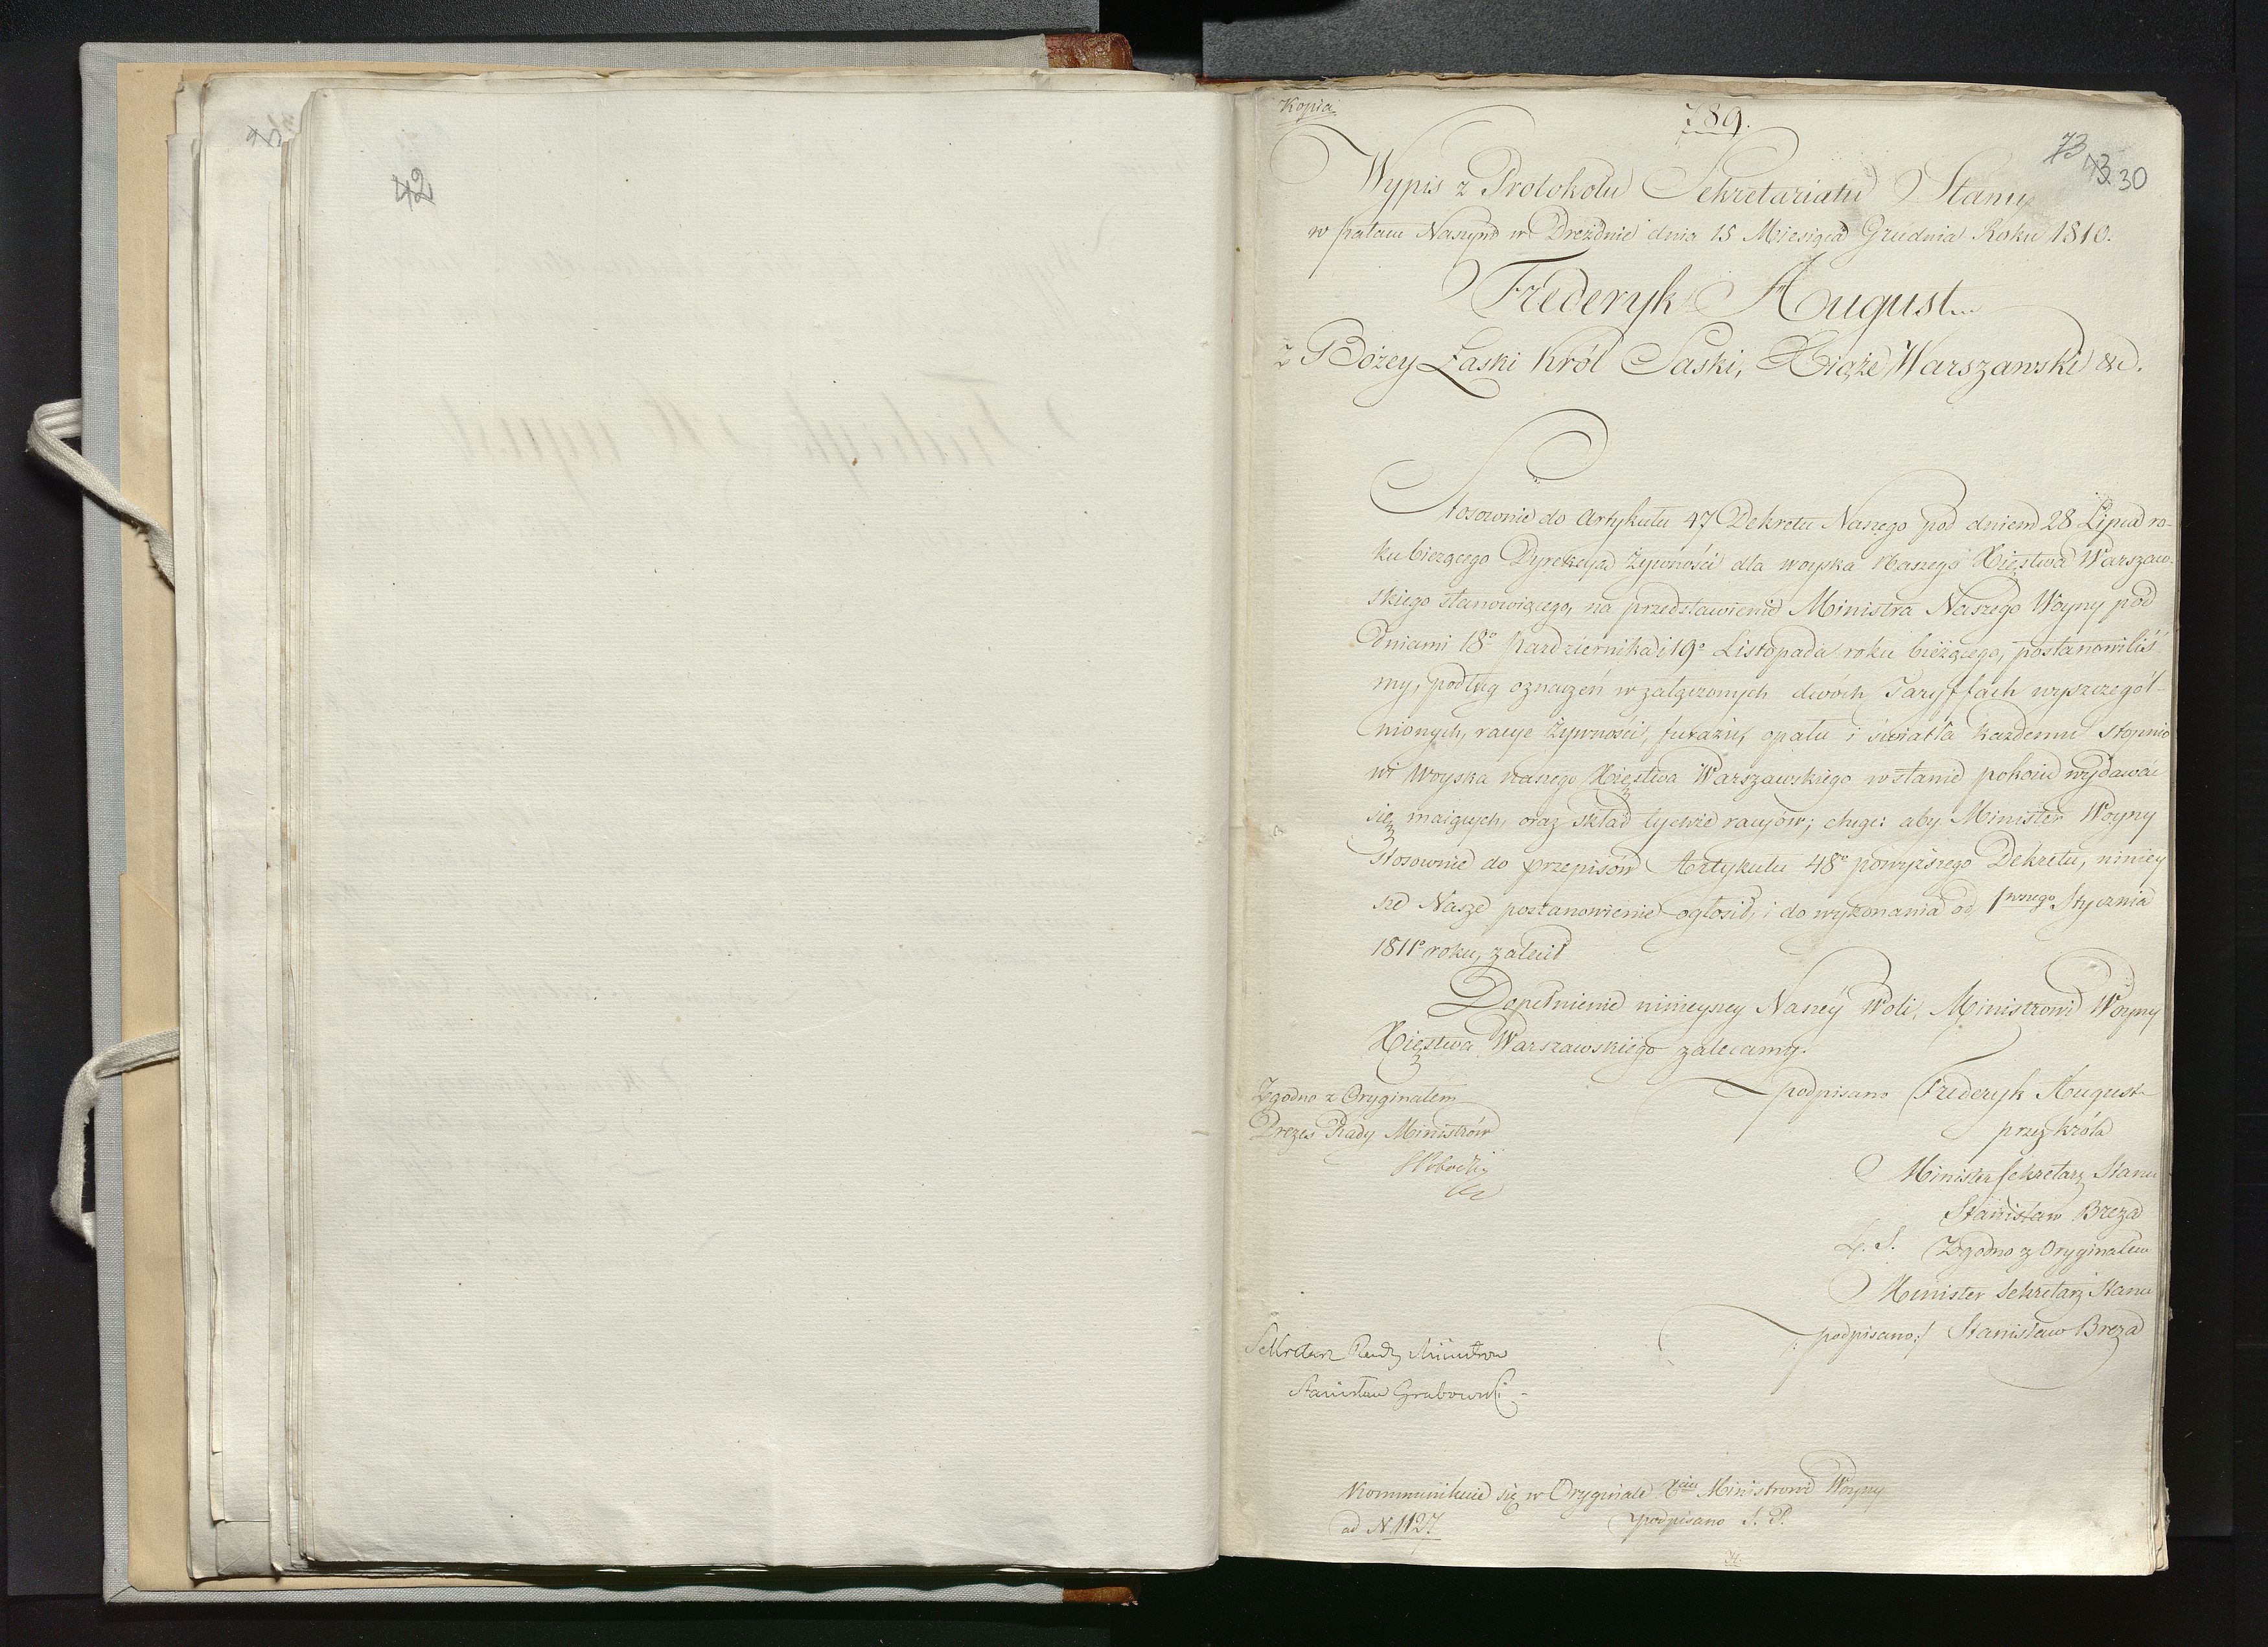 42
Kopia
789.
73
43. 30
Wypis z Protokołu Sekretariatu Stanu
w pałacu Naszym w Dreźdnie dnia 15 Miesiąca Grudnia Roku 1810.
Frederyk August
z Bożey Łaski Król Saski, Xiąże Warszawski &c.
Stosownie do Artykułu 47 Dekretu Naszego pod dniem 28 Lipca ro-
ku bieżącego Dyrekcyą Żywności dla woyska Naszego Xięstwa Warszaw-
skiego stanowiącego, na przedstawienie Ministra Naszego Woyny pod
Dniami 18º Października i 19º Listopada roku bieżącego, postanowiliś-
my, podług oznaczeń w załączonych dwóch Taryffach wyszczegól-
nionych, racye Żywności, furażu, opału i światła każdemu stopnio-
wi Woyska naszego Xięstwa Warszawskiego w stanie pokoiu wydawać
się maiących, oraz skład tychże racyów; chcąc: aby Minister Woyny
stosownie do przepisów Artykułu 48º powyższego Dekretu, niniey
sze Nasze postanowienie ogłosił, i do wykonania od 1wszego Stycznia
1811º roku, zalecił
Dopełnienie ninieyszey Naszéy Woli, Ministrowi Woyny
Xięstwa Warszawskiego zalecamy.
Zgodno z Oryginałem
Prezes Rady Ministrów
podpisano Frederyk August
przez Króla
Minister Sekretarz Stanu
Stanisław Breza
L. S. Zgodno z Oryginałem
Minister Sekretarz Stanu
podpisano:/ Stanisław Breza
Sekretarz Rady Ministrow
Stanisław Grabowski
Kommunikuie się w Oryginale Xciu Ministrowi Woyny
ad N 1127.
podpisano S. P.